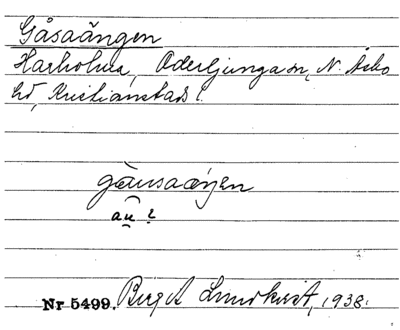 Gåsaängen
Harholma, Oderljunga sn, N. Åsbo
hd, Kristianstads l.
gåusaäŋen
au ?
Nr 5499. Birgit Lundkvist, 1938.